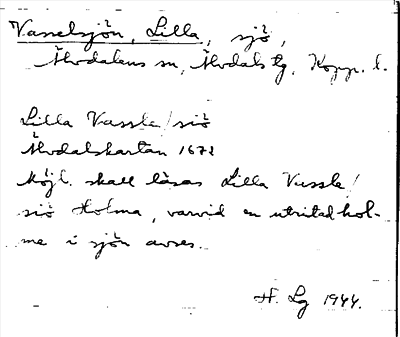 Vasselsjön, Lilla, sjö,
Älvdalens sn, Älvdals tg, Kopp. l.
Lilla Vassle/siö
Älvdalskartan 1672
Möjl. skall läsas Lilla Vussle/
siö Holma, varvid en utritad hol-
me i sjön avses.
H. Lg 1944.